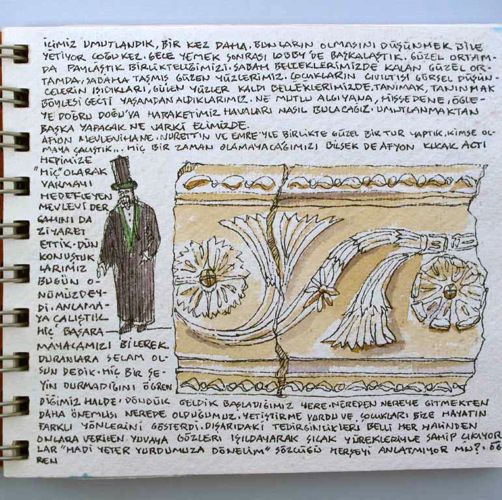 İÇİMİZ UMUTLANDIK, BİR KEZ DAHA. BUNLARIN OLMASINI DÜŞÜNMEK BİLE
YETİYOR ÇOĞU KEZ. GECE YEMEK SONRASI LOBBY'DE BAŞKALAŞTIK. GÜZEL ORTAM-
DA PAYLAŞTIK BİRLİKTELİĞİMİZİ. SABAH BELLEKLERİMİZDE KALAN GÜZEL OR-
TAMDA, SABAHA TAŞMIŞ GÜZEN YÜZLERİMİZ. ÇOCUKLARIN CIVILTISI GÖRSEL DÜŞÜN-
CELERİN IŞIDIKLARI, GÜLEN YÜZLER KALDI BELLEKLERİMİZDE. TANIMAK, TANINMAK
BÖYLESİ GEÇTİ YAŞAMDAN ALDIKLARIMIZ. NE MUTLU ALGIYANA, HİSSEDENE, ÖĞLE-
YE DOĞRU DOĞU'YA HAREKETİMİZ HAVALARI NASIL BULACAĞIZ. UMUTLANMAKTAN
BAŞKA YAPACAK NE VARKİ ELİMİZDE.
AFYON MEVLEVİHANE. NURETTİN VE EMRE'YLE BİRLİKTE GÜZEL BİR TUR YAPTIK. KİMSE OL-
MAYA ÇALIŞTIK... HİÇ BİR ZAMAN OLAMAYACAĞIMIZI BİLSEK DE AFYON KUCAK AÇTI
HEPİMİZE
"HİÇ" OLARAK
VARMAYI
HEDEFLEYEN
MEVLEVİ DER
GAHINI DA
ZİYARET
ETTİK. DÜN
KONUŞTUK
LARIMIZ
BUGÜN Ö-
NÜMÜZDEY-
Dİ. ANLAMA-
YA ÇALIŞTIK
HİÇ BAŞARA
MAYACAMIZI BİLEREK.
DURANLARA SELAM OL-
SUN DEDİK. HİÇ BİR ŞE-
YİN DURMADIĞINI ÖĞREN
DİĞİMİZ HALDE. DÖNDÜK GELDİK BAŞLADIĞIMIZ YERE. NEREDEN NEREYE GİTMEKTEN
DAHA ÖNEMLİSİ NEREDE OLDUĞUMUZ. YETİŞTİRME YURDU VE ÇOCUKLARI BİZE HAYATIN
FARKLI YÖNLERİNİ GÖSTERDİ. DIŞARIDAKİ TEDİRGİNLİKLERİ BELLİ HER HALİNDEN
ONLARA VERİLEN YUVAYA GÖZLERİ IŞILDAYARAK SICAK YÜREKLERİYLE SAHİP ÇIKIYOR
LAR "HADİ YETER YURDUMUZA DÖNELİM" SÖZCÜĞÜ HERŞEYİ ANLATMIYOR MU?. ÖĞ
REN